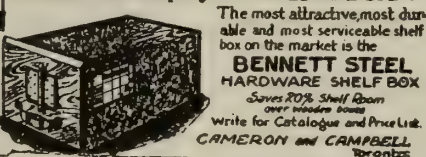 The most attractive, most dur-
able and most serviceable shelf
box on the market is the
BENNETT STEEL
HARDWARE SHELF BOX
Saves 20% Shelf Room
over wooden boxes
Write for Catalogue and Price List.
CAMERON and CAMPBELL
Toronto